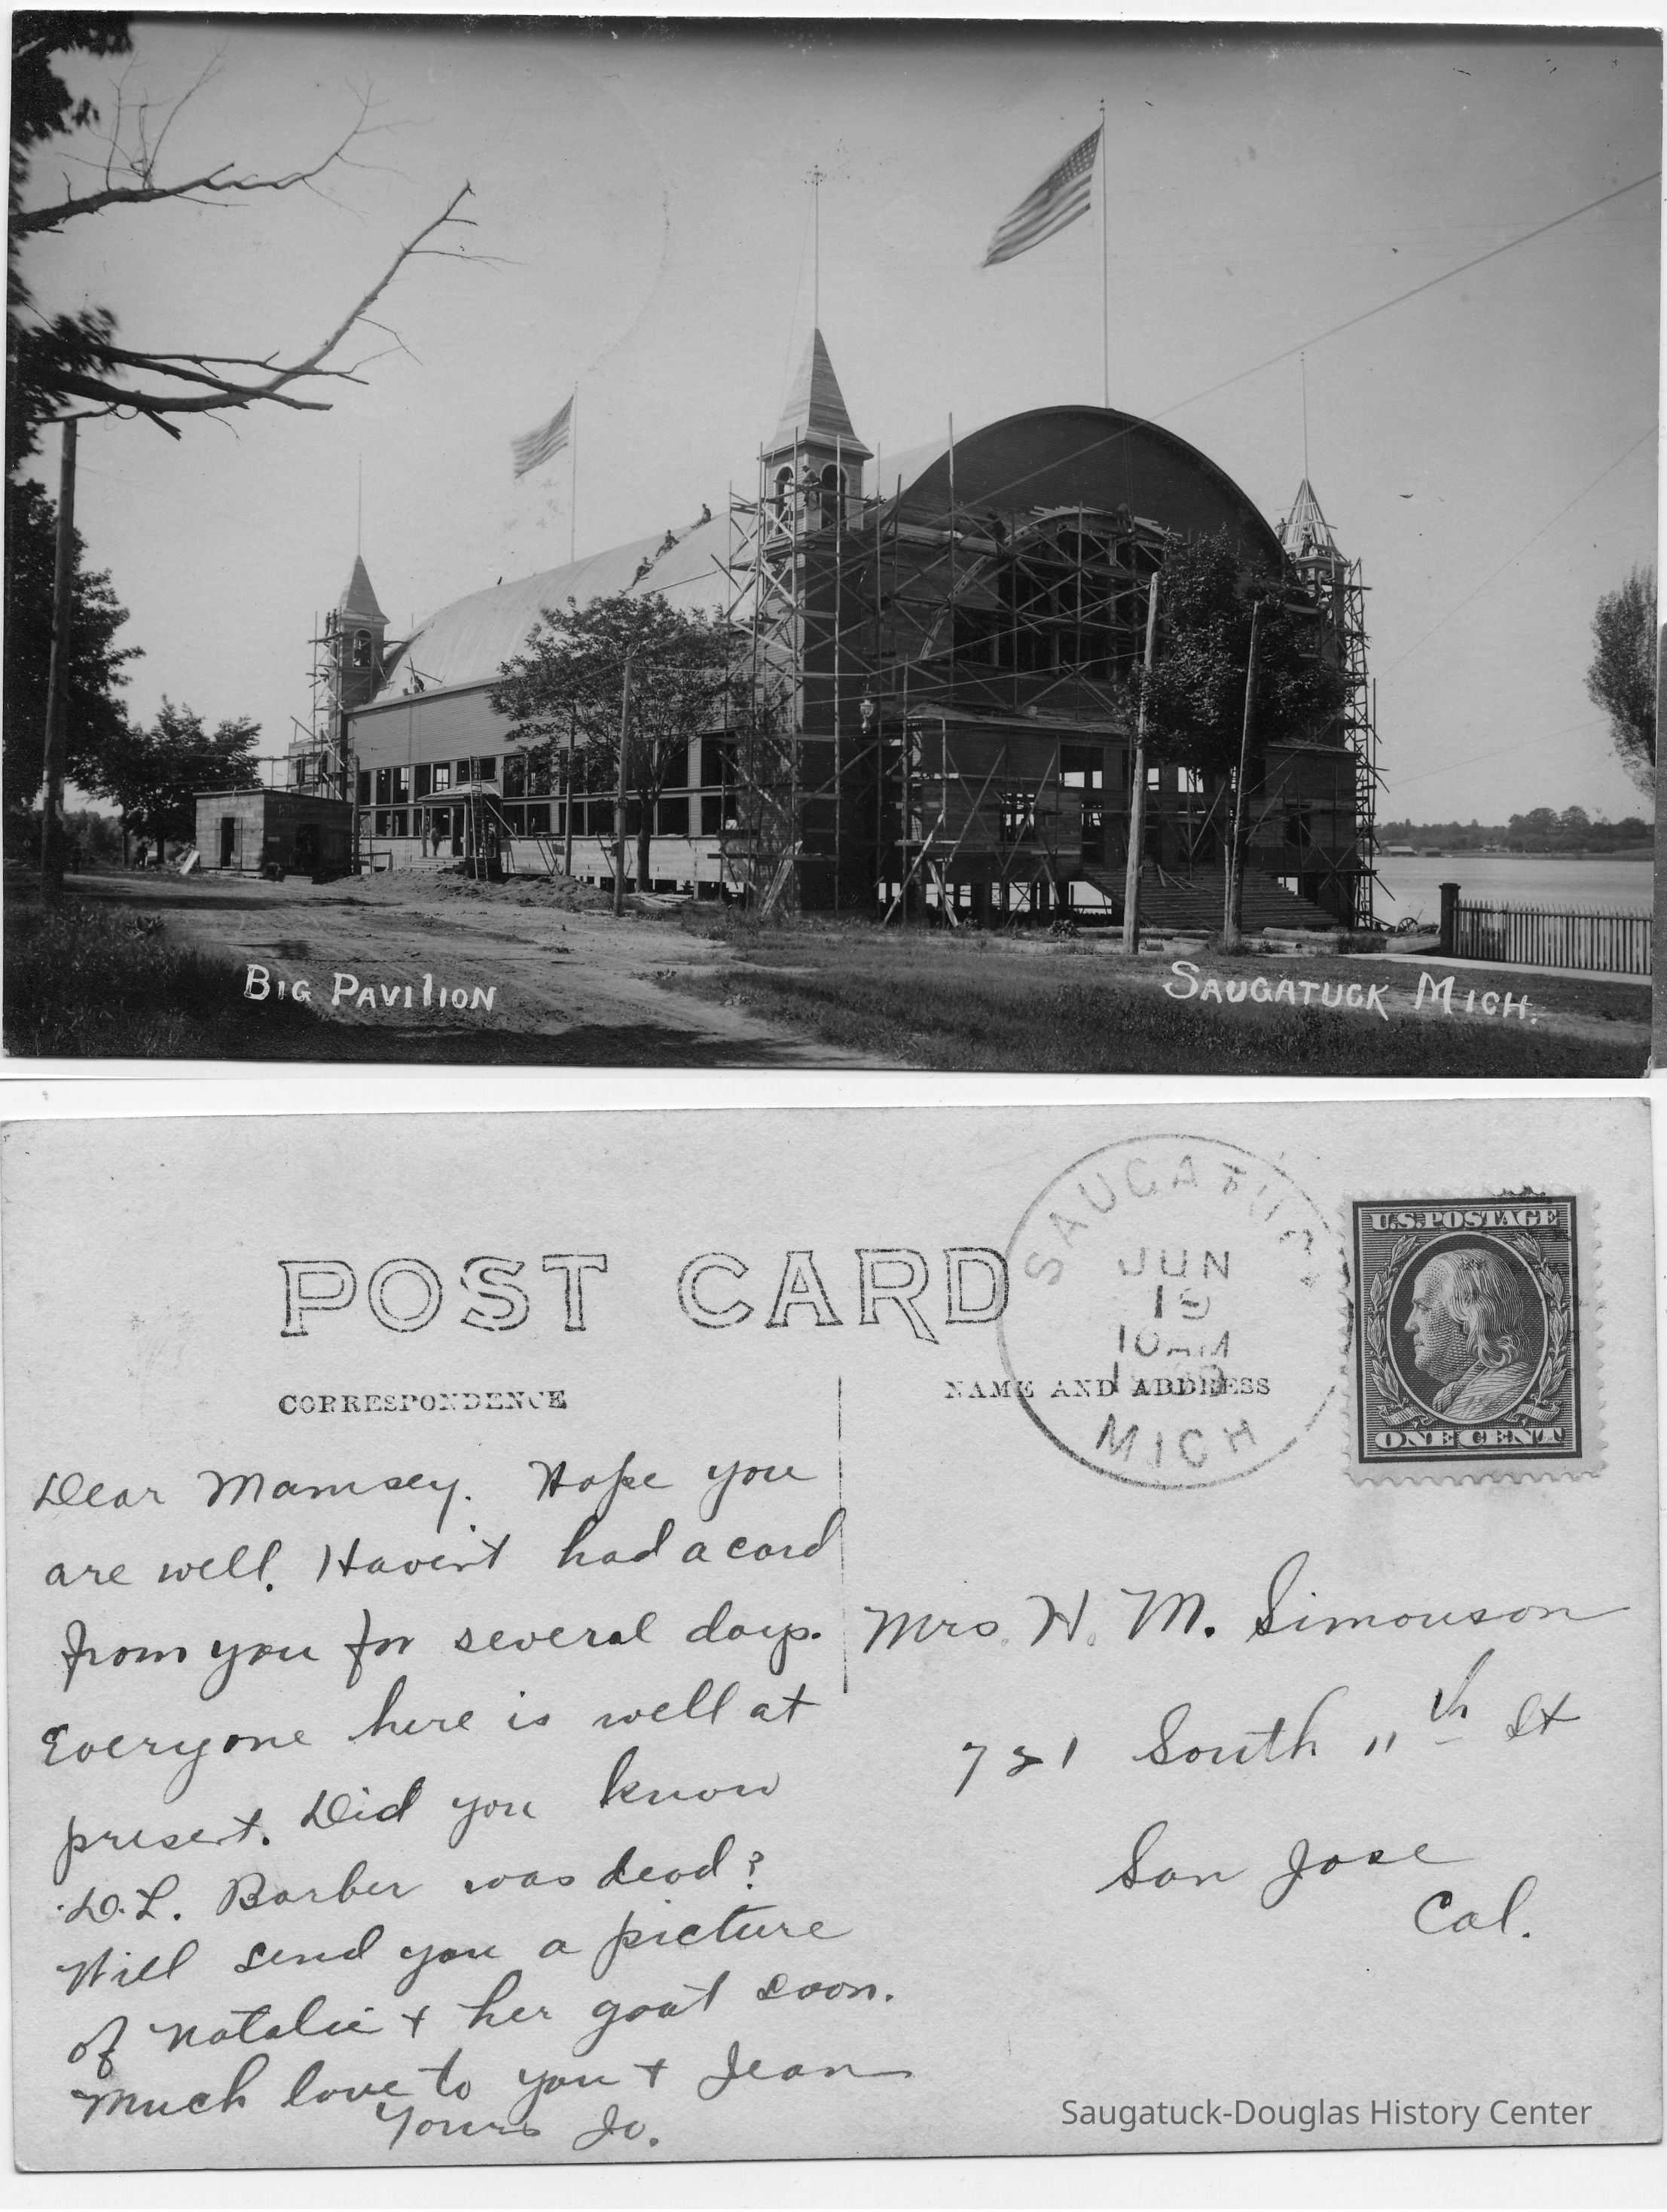 BIG PAVILION
SAUGATUCK MICH.
POST CARD
CORRESPONDENCE
NAME AND ADDRESS
SAUGATUCK
JUN
19
10 AM
MICH
U.S. POSTAGE
ONE CENT
Dear Mamsey. Hope you
are well. Haven't had a card
from you for several days.
Everyone here is well at
present. Did you know
D.L. Barber was dead?
Will send you a picture
of Natalie + her goat soon.
Much love to you + Jean
Yours Jo.
Mrs. H. M. Simonson
721 South 11th St
San Jose
Cal.
Saugatuck-Douglas History Center